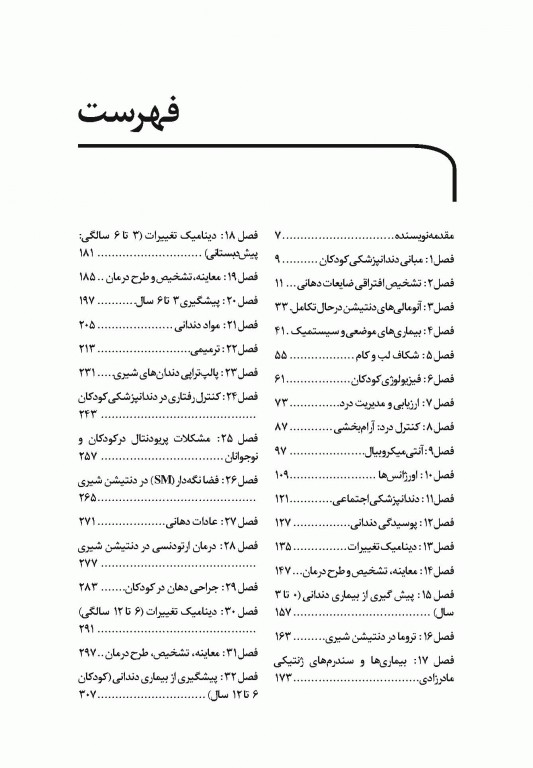 فهرست
مقدمه نویسنده............................... ۷
فصل ۱: مبانی دندانپزشکی کودکان .......... ۹
فصل ۲: تشخیص افتراقی ضایعات دهانی... ۱۱
فصل ۳: آنومالی‌های دنتیشن درحال تکامل. ۳۳
فصل ۴: بیماری‌های موضعی و سیستمیک .۴۱
فصل ۵: شکاف لب و کام .................. ۵۵
فصل ۶: فیزیولوژی کودکان..................۶۱
فصل ۷: ارزیابی و مدیریت درد.............. ۷۳
فصل ۸: کنترل درد: آرام‌بخشی ............ ۸۷
فصل ۹: آنتی‌میکروبیال..................... ۹۷
فصل ۱۰: اورژانس‌ها ........................۱۰۹
فصل ۱۱: دندانپزشکی اجتماعی............۱۲۱
فصل ۱۲: پوسیدگی دندانی................ ۱۲۷
فصل ۱۳: دینامیک تغییرات............... ۱۳۵
فصل ۱۴: معاینه، تشخیص و طرح درمان... ۱۴۷
فصل ۱۵: پیش گیری از بیماری دندانی (۰ تا ۳
سال) ...................................... ۱۵۷
فصل ۱۶: تروما در دنتیشن شیری......... ۱۶۳
فصل ۱۷: بیماری‌ها و سندرم‌های ژنتیکی
مادرزادی...................................۱۷۳
فصل ۱۸: دینامیک تغییرات (۳ تا ۶ سالگی:
پیش‌دبستانی) ............................. ۱۸۱
فصل ۱۹: معاینه، تشخیص و طرح درمان .. ۱۸۵
فصل ۲۰: پیشگیری ۳ تا ۶ سال........... ۱۹۷
فصل ۲۱: مواد دندانی ..................... ۲۰۵
فصل ۲۲: ترمیمی.......................... ۲۱۳
فصل ۲۳: پالپ‌تراپی دندان‌های شیری..... ۲۳۱
فصل ۲۴: کنترل رفتاری در دندانپزشکی کودکان
........................................... ۲۴۳
فصل ۲۵: مشکلات پریودنتال درکودکان و
نوجوانان .................................. ۲۵۷
فصل ۲۶: فضا نگه‌دار (SM) در دنتیشن شیری
............................................۲۶۵
فصل ۲۷: عادات دهانی................... ۲۷۱
فصل ۲۸: درمان ارتودنسی در دنتیشن شیری
........................................... ۲۷۷
فصل ۲۹: جراحی دهان در کودکان....... ۲۸۳
فصل ۳۰: دینامیک تغییرات (۶ تا ۱۲ سالگی)
............................................ ۲۹۱
فصل ۳۱: معاینه، تشخیص، طرح درمان ..۲۹۷
فصل ۳۲: پیشگیری از بیماری دندانی (کودکان
۶ تا ۱۲ سال) ..............................۳۰۷